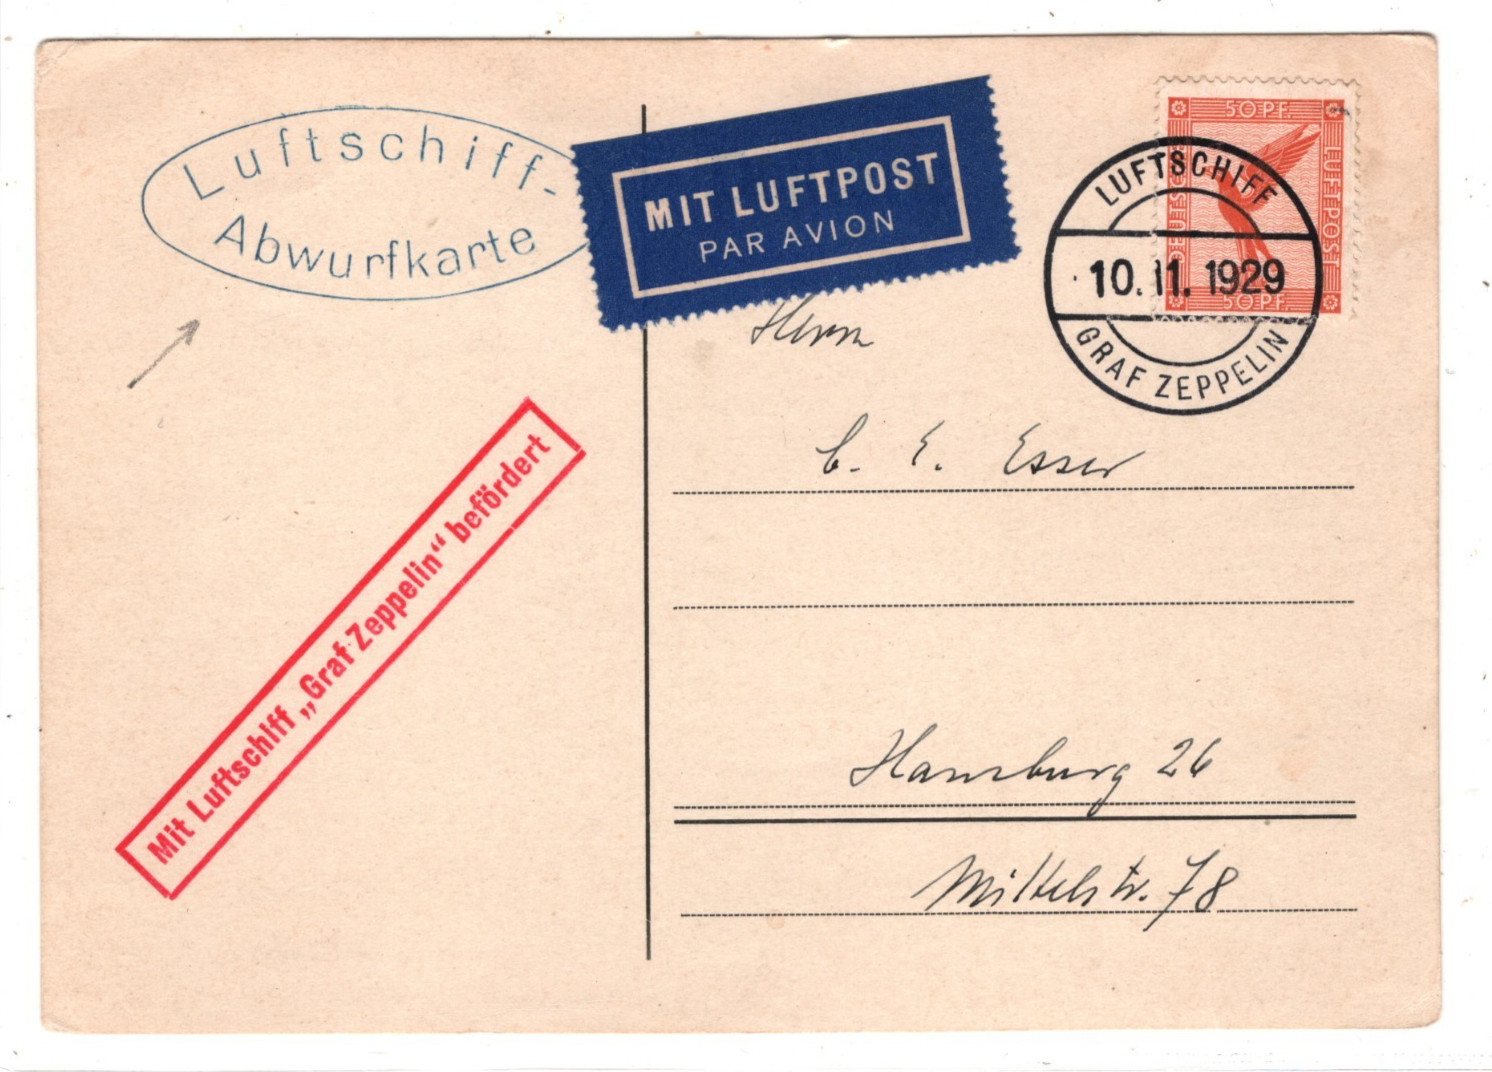 Luftschiff-
Abwurfkarte
MIT LUFTPOST
PAR AVION
50 PF.
LUFTPOST
50 PF.
LUFTSCHIFF
10.11.1929
GRAF ZEPPELIN
Herrn
C. E. Esser
Mit Luftschiff „Graf Zeppelin“ befördert
Hamburg 26
Mittelstr. 78